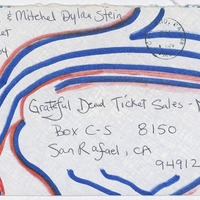 & Mitchel Dylan Stein
et
Grateful Dead Ticket Sales -
Box C-S 8150
San Rafael, CA
94912